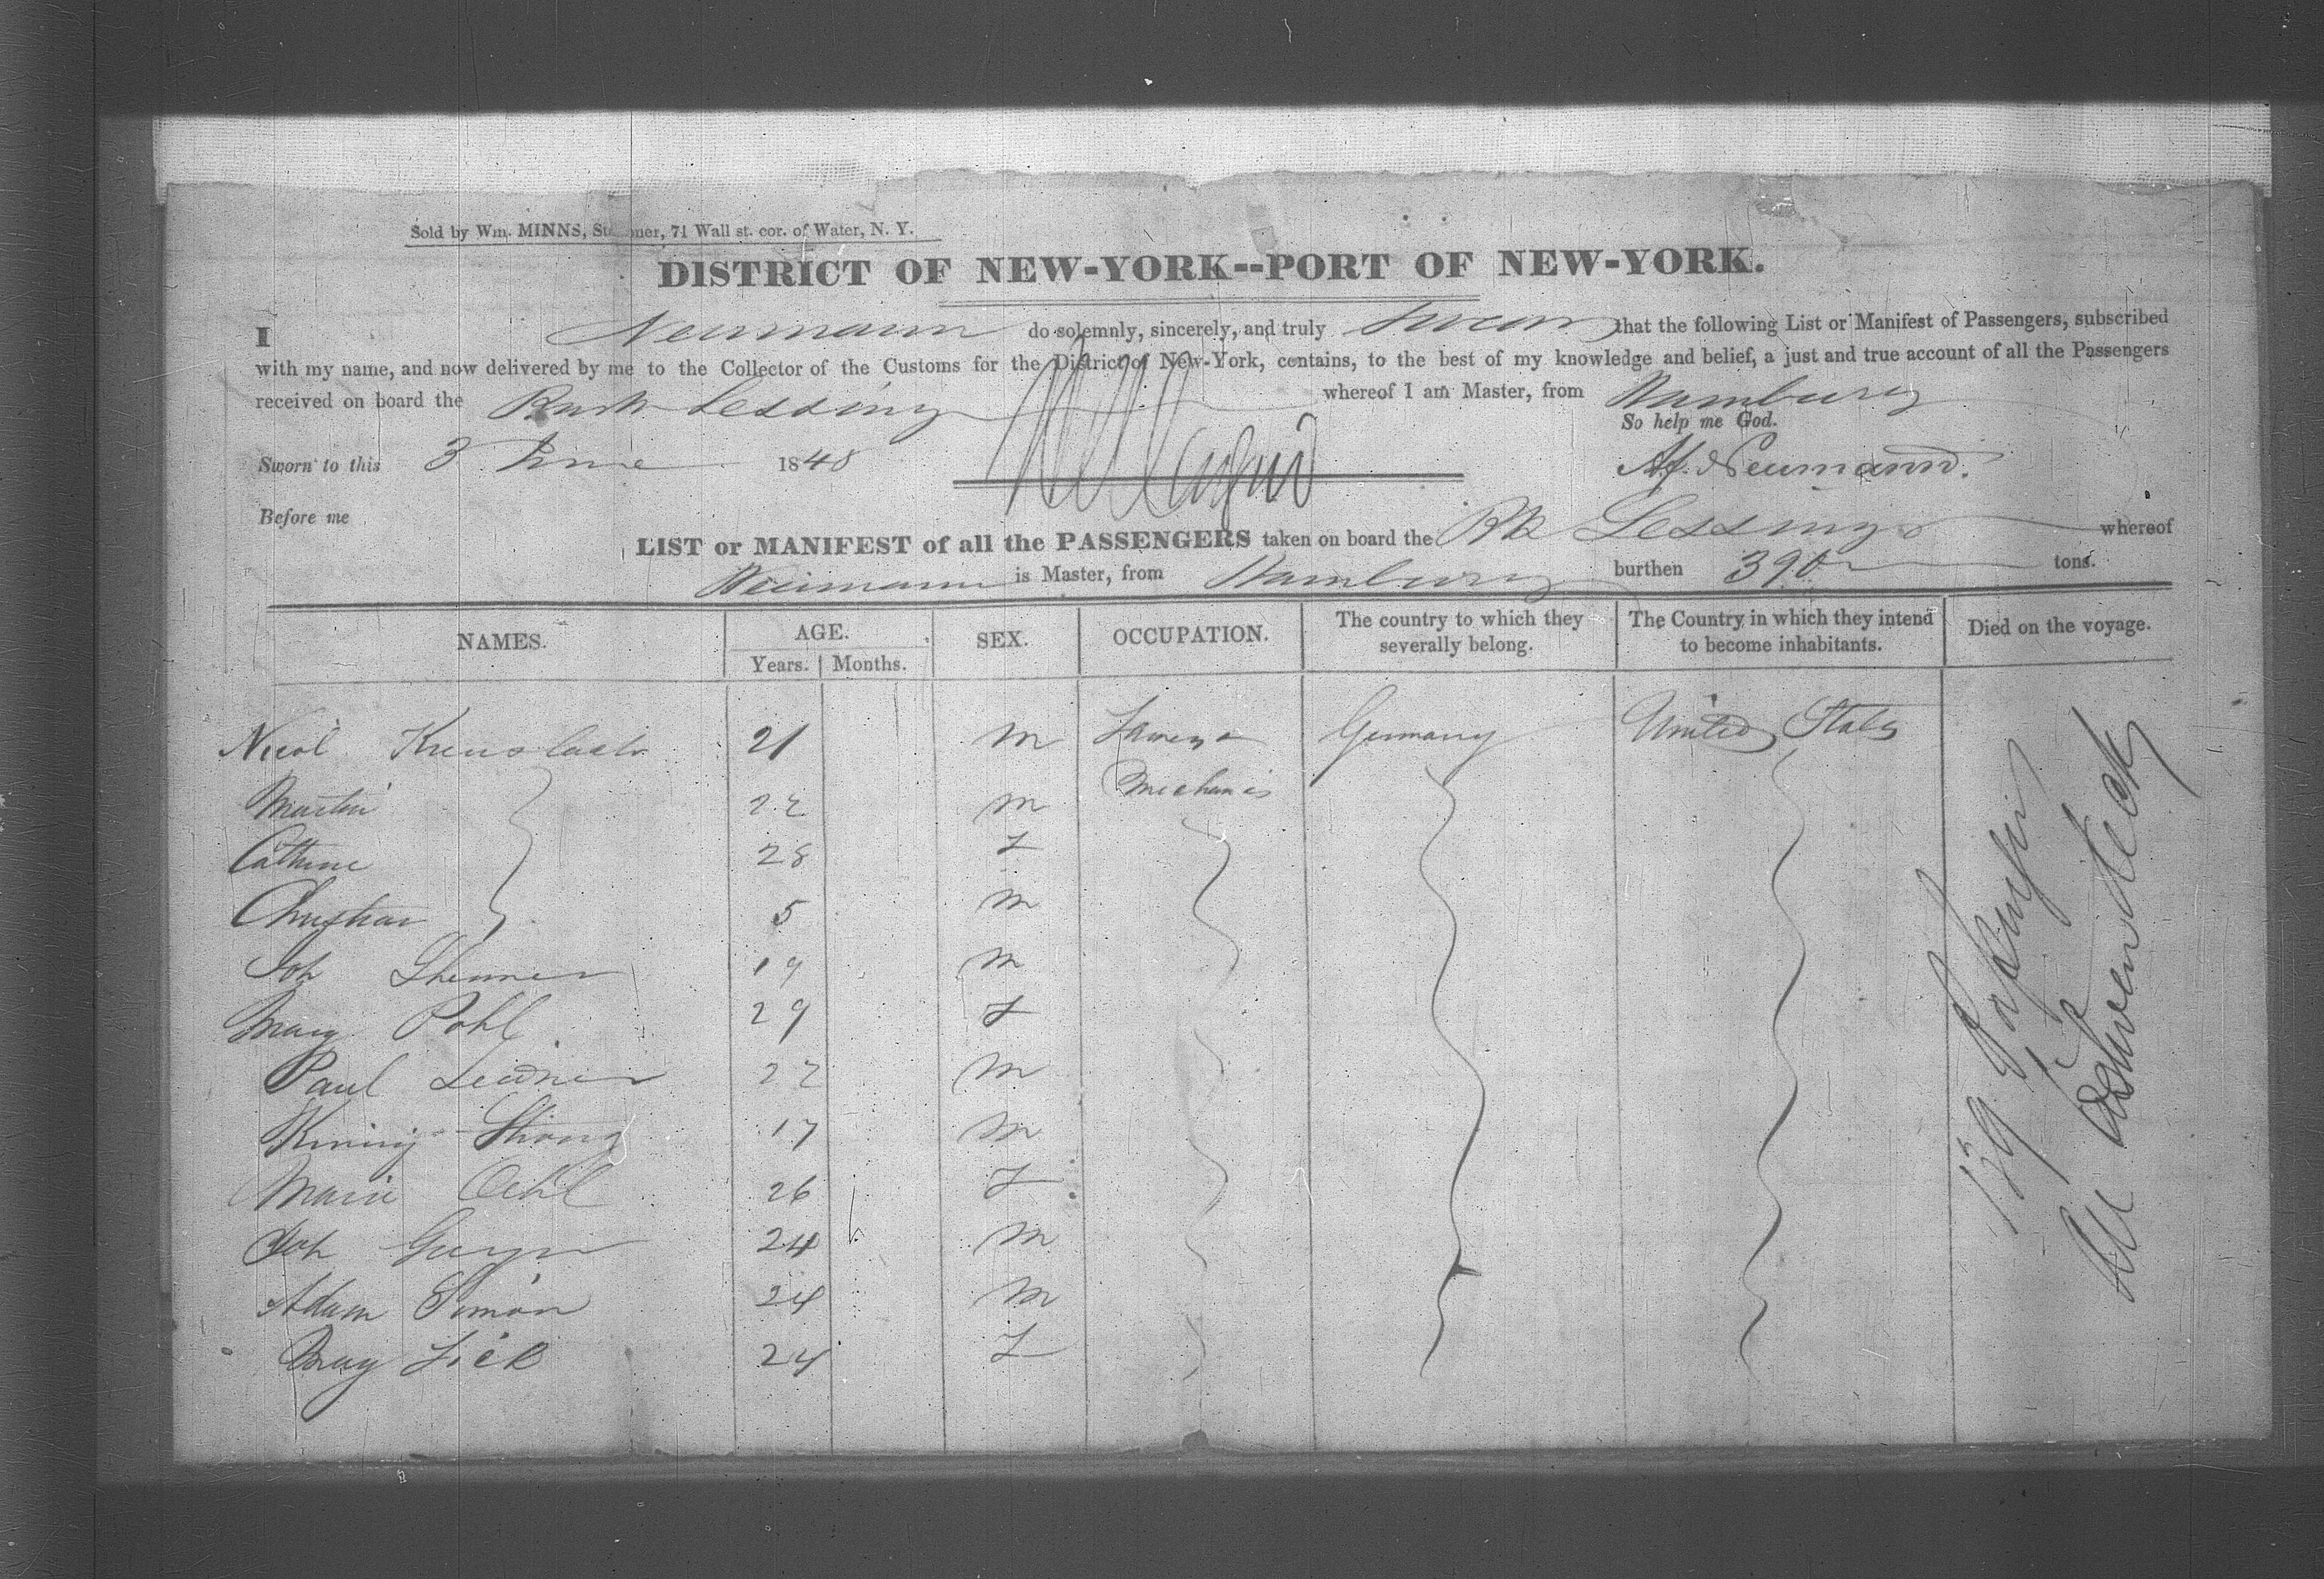 Sold by Wm. MINNS, Stationer, 71 Wall st. cor. of Water, N. Y.
DISTRICT OF NEW-YORK--PORT OF NEW-YORK.
I Neumann do solemnly, sincerely, and truly swear that the following List or Manifest of Passengers, subscribed
with my name, and now delivered by me to the Collector of the Customs for the District of New-York, contains, to the best of my knowledge and belief, a just and true account of all the Passengers
received on board the Bark Lessing whereof I am Master, from Hamburg
So help me God.
Sworn to this 3 June 1848
Neumann
Before me
LIST or MANIFEST of all the PASSENGERS taken on board the Bk Lessing whereof
Neumann is Master, from Hamburg burthen 390 tons.
NAMES. AGE. SEX. OCCUPATION. The country to which they severally belong. The Country in which they intend to become inhabitants. Died on the voyage.
Years. Months.
Nicol 21 m Germany United States
Mechanics
Martin 22 m
Cathrine 28 f
Christian 5 m
Joh 19 m
Mary Pohl 29 f
Paul 22 m
17 m
Marie Oehl 26 f
Joh 24 m
Adam Simon 24 m
Mary Fick 24 f